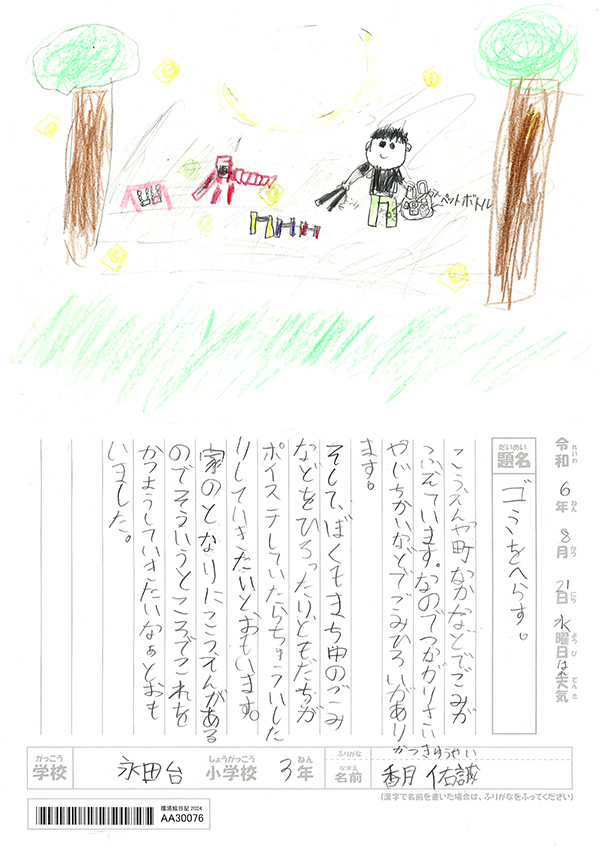 ペットボトル
令和6年8月21日水曜日 はれ 天気
れいわ ねん がつ にち ようび てんき
題名 ゴミをへらす。
だいめい
こうえんや町なかなどでごみが
ふえています。なのでつかがりさい
やじちかいなどでごみひろいがあり
ます。
そして、ぼくもまち中のごみ
などをひろったりともだちが
ポイステしていたらちゅういした
りしていきたいとおもいます。
家のとなりにこうえんがある
のでそういうところでこれを
かつようしていきたいなぁとおも
いました。
がっこう しょうがっこう ねん ふりがな かつきゆうせい
学校 永田台 小学校 3年 名前 香月 佑誠
なまえ
(漢字で名前を書いた場合は、ふりがなをふってください)
環境絵日記 2024
AA30076